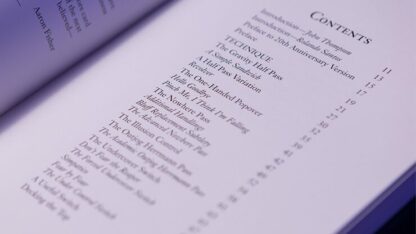 record
of the next
believed—
Aaron Fisher
CONTENTS
Introduction—John Thompson
Introduction—Rolando Santos
Preface to 20th Anniversary Version
Preface
TECHNIQUE
The Gravity Half Pass
A Simple Sandwich
A Half Pass Variation
Revolver
The One Handed Popover
Hello Goodbye
Pinch Me, I Think I'm Falling
The Nowhere Pass
Additional Handling
Bluff Replacement Subtlety
The Advanced Nowhere Pass
The Illusion Control
The Outjog Herrmann Pass
The Academic Outjog Herrmann Pass
The Undercover Switch
Don't Fear the Reaper
The Farewell Undercover Switch
Four By Four
The Under Control Switch
A Useful Switch
Decking the Top
11
13
15
17
19
21
22
30